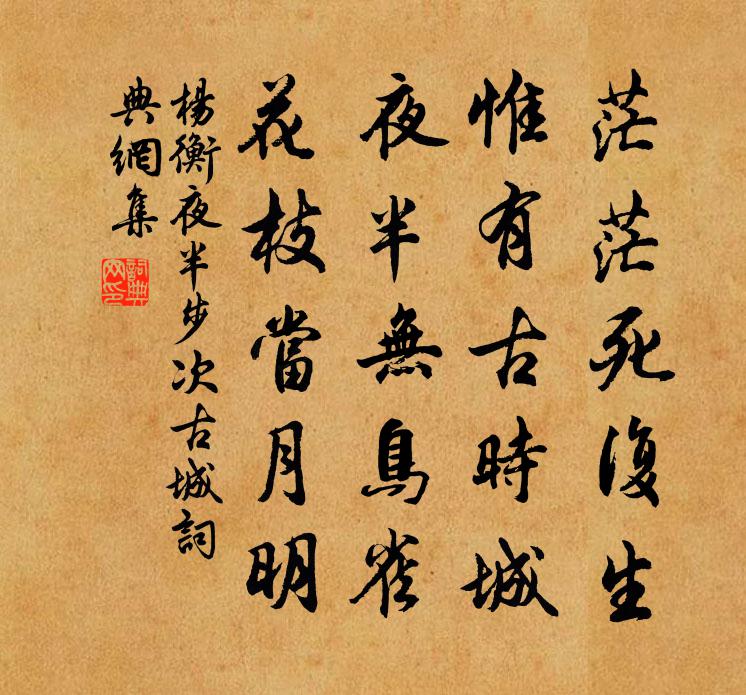 茫茫死復生
惟有古時城
夜半無鳥雀
花枝當月明
楊衡夜半步次古城詞
典網集
詞典
网印